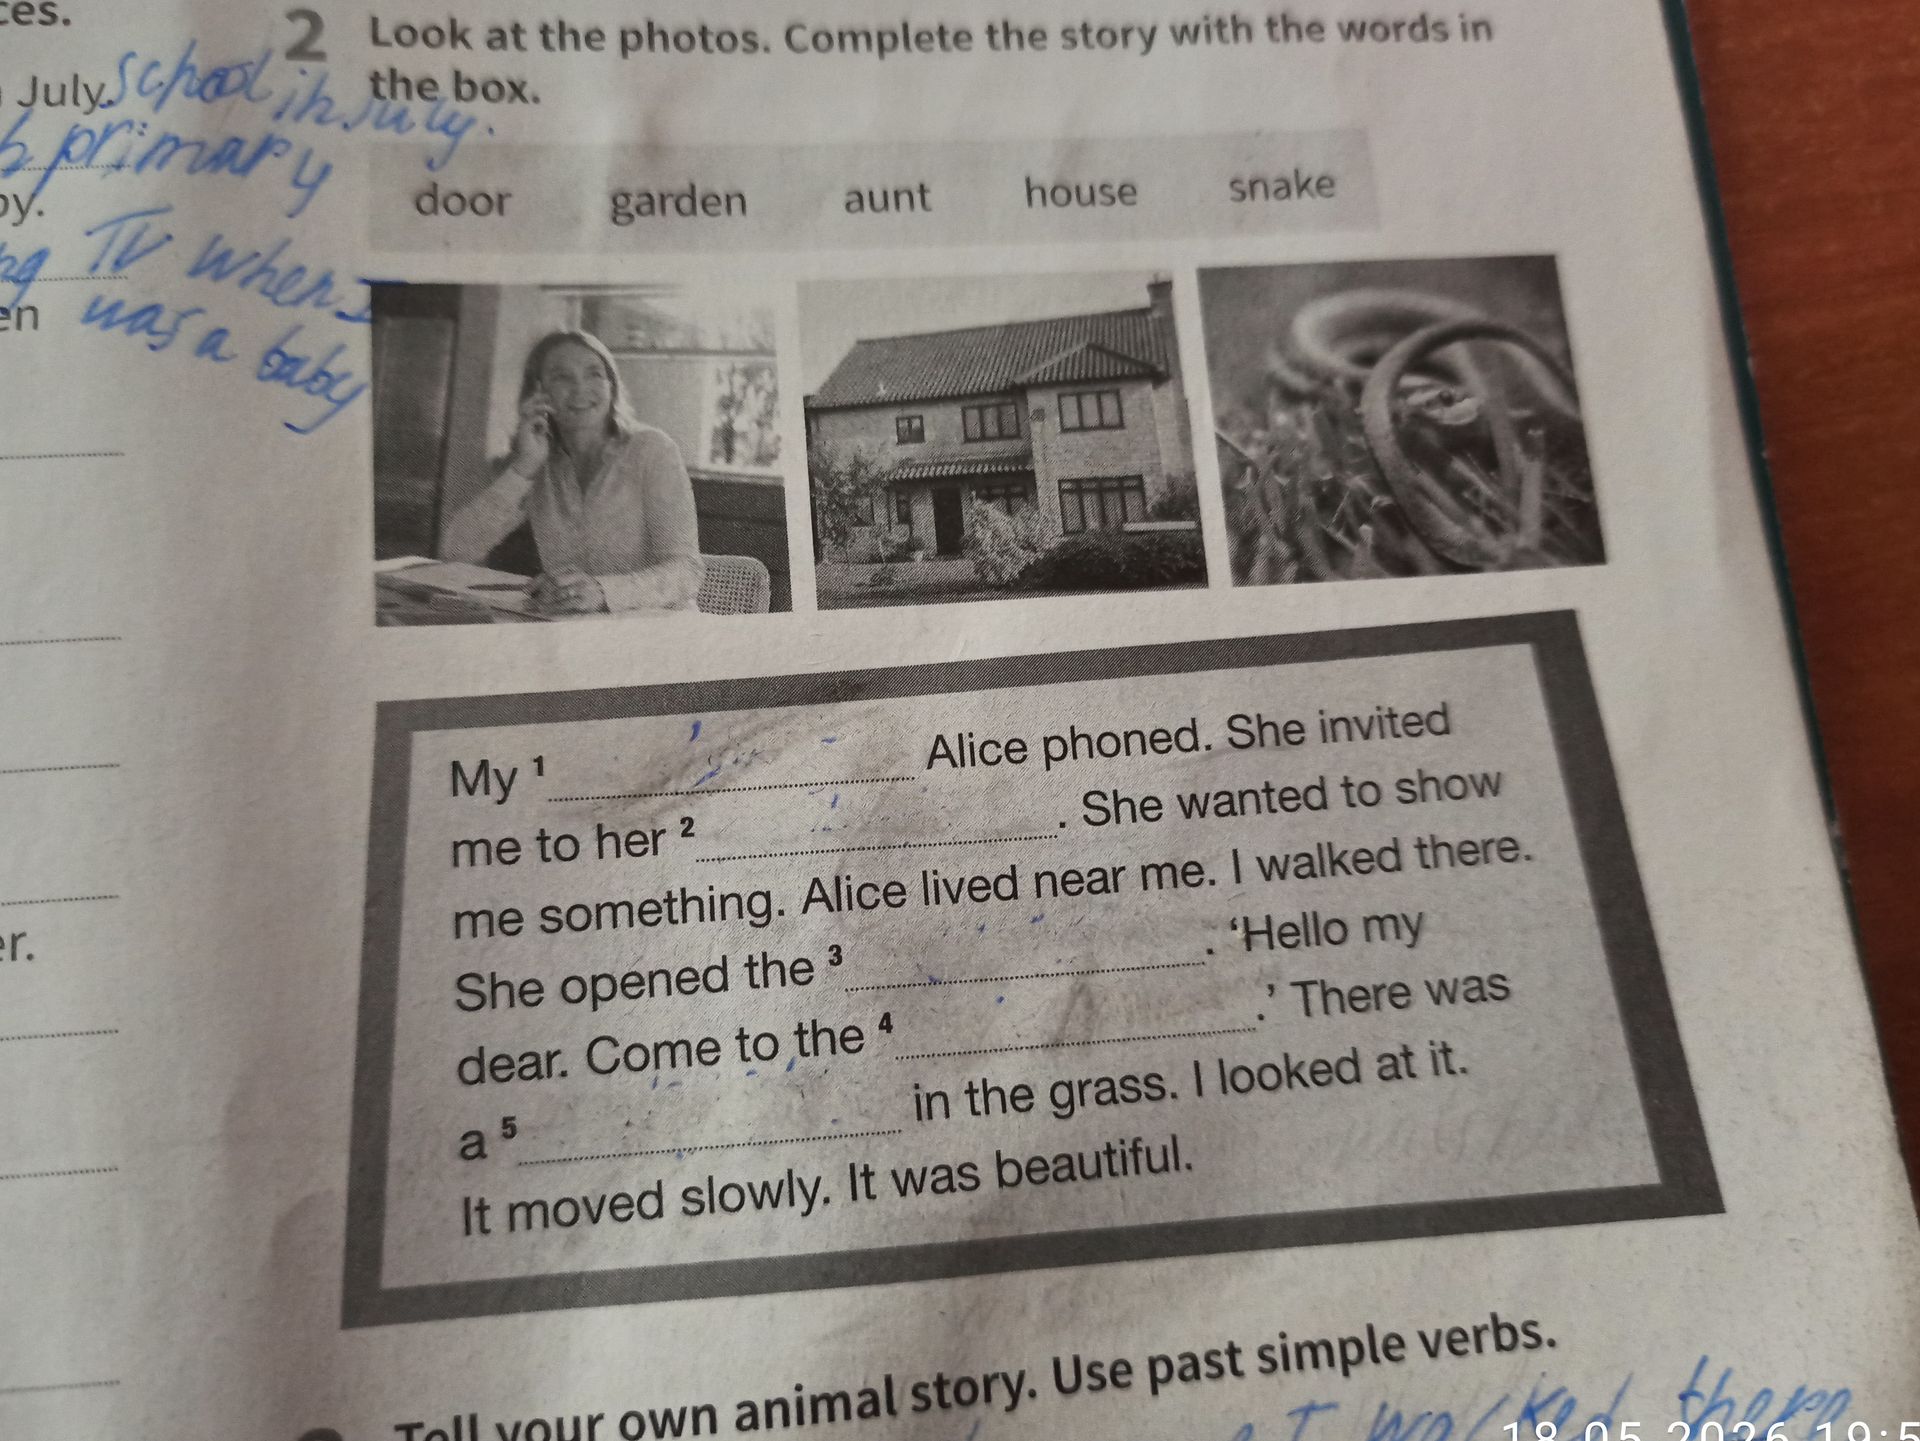 ces.
July.
school in July.
primary
py.
TV when I
en
was a baby
er.
2 Look at the photos. Complete the story with the words in
the box.
door garden aunt house snake
My 1 Alice phoned. She invited
me to her 2 . She wanted to show
me something. Alice lived near me. I walked there.
She opened the 3 . ‘Hello my
dear. Come to the 4 .’ There was
a 5 in the grass. I looked at it.
It moved slowly. It was beautiful.
Tell your own animal story. Use past simple verbs.
I walked there
18.05.2026 19:5